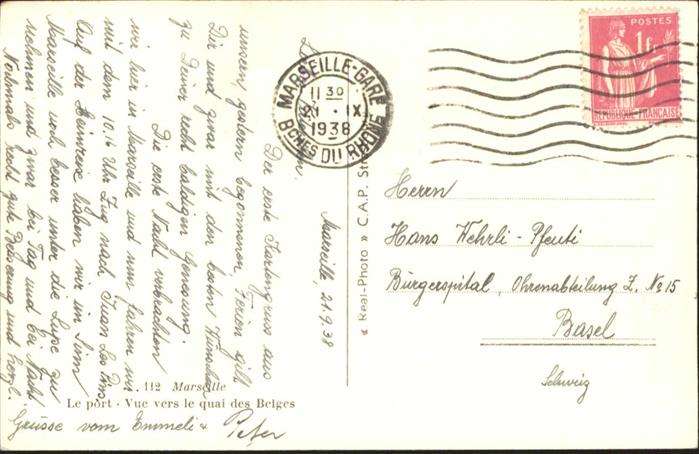 Marseille, 21.9.38
L
Der erste Feriengruss aus
unsern, gestern begonnenen, Ferien gilt
Dir und zwar mit den besten Wünschen
zu Deiner recht baldigen Genesung.
Die erste Nacht verbrachten
wir hier in Marseille und nun fahren wir
mit dem 10.16 Uhr Zug nach Juan Les Pins
Auf der Heimreise haben wir im Sinn
Marseille noch besser unter die Lupe zu
nehmen und zwar bei Tag und bei Nacht
Nochmals recht gute Besserung und herzl.
Grüsse vom Emmeli & Peter
112 Marseille
Le port - Vue vers le quai des Belges
« Real-Photo » C.A.P.
MARSEILLE-GARE
11 30
21 · IX
1938
BCHES DU RHÔNE
POSTES
1f
REPUBLIQUE FRANÇAISE
Herrn
Hans Wehrli-Pfenti
Bürgerspital, Ohrenabteilung Z. No 15
Basel
Schweiz